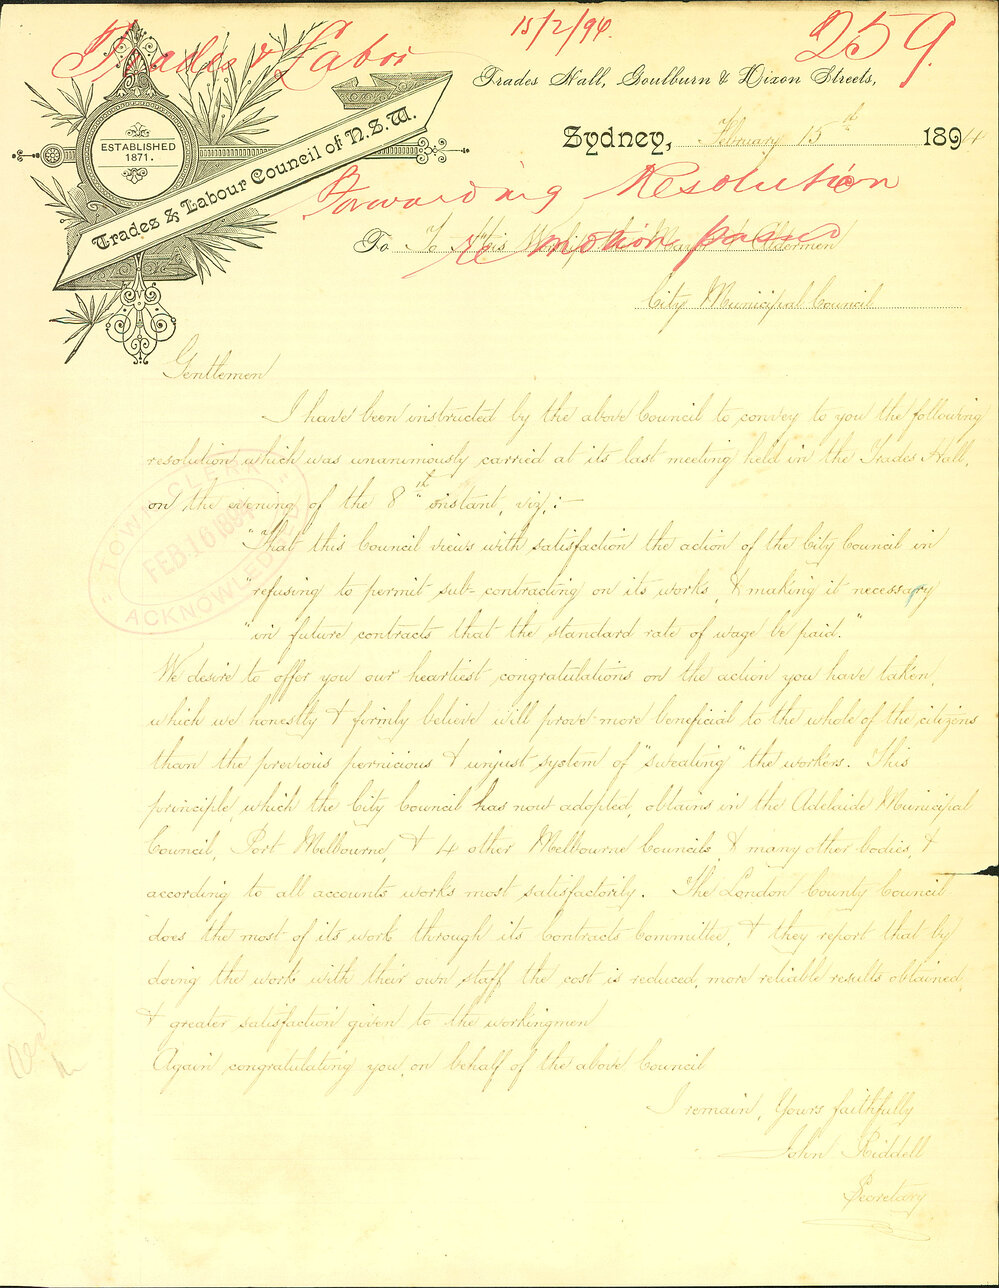 Trades & Labor
15/2/94.
259.
ESTABLISHED
1871.
Trades & Labour Council of N.S.W.
Trades Hall, Goulburn & Dixon Streets,
Sydney, February 15th 1894
Forwarding Resolution
re motion
To To His Worship Mayor & Aldermen
City Municipal Council
Gentlemen
I have been instructed by the above Council to convey to you the following
resolution which was unanimously carried at its last meeting held in the Trades Hall,
on the evening of the 8th instant, viz:-
"That this Council views with satisfaction the action of the City Council in
"refusing to permit sub-contracting on its works, & making it necessary
"in future contracts that the standard rate of wage be paid."
We desire to offer you our heartiest congratulations on the action you have taken,
which we honestly & firmly believe will prove more beneficial to the whole of the citizens
than the previous pernicious & unjust system of "sweating" the workers. This
principle which the City Council has now adopted, obtains in the Adelaide Municipal
Council, Port Melbourne, & 4 other Melbourne Councils, & many other bodies, &
according to all accounts works most satisfactorily. The London County Council
does the most of its work through its Contracts Committee, & they report that by
doing the work with their own staff the cost is reduced, more reliable results obtained,
& greater satisfaction given to the workingmen
Again congratulating you, on behalf of the above Council
I remain, Yours faithfully
John Riddell
Secretary
TOWN CLERK
FEB. 16 1894
ACKNOWLEDGED